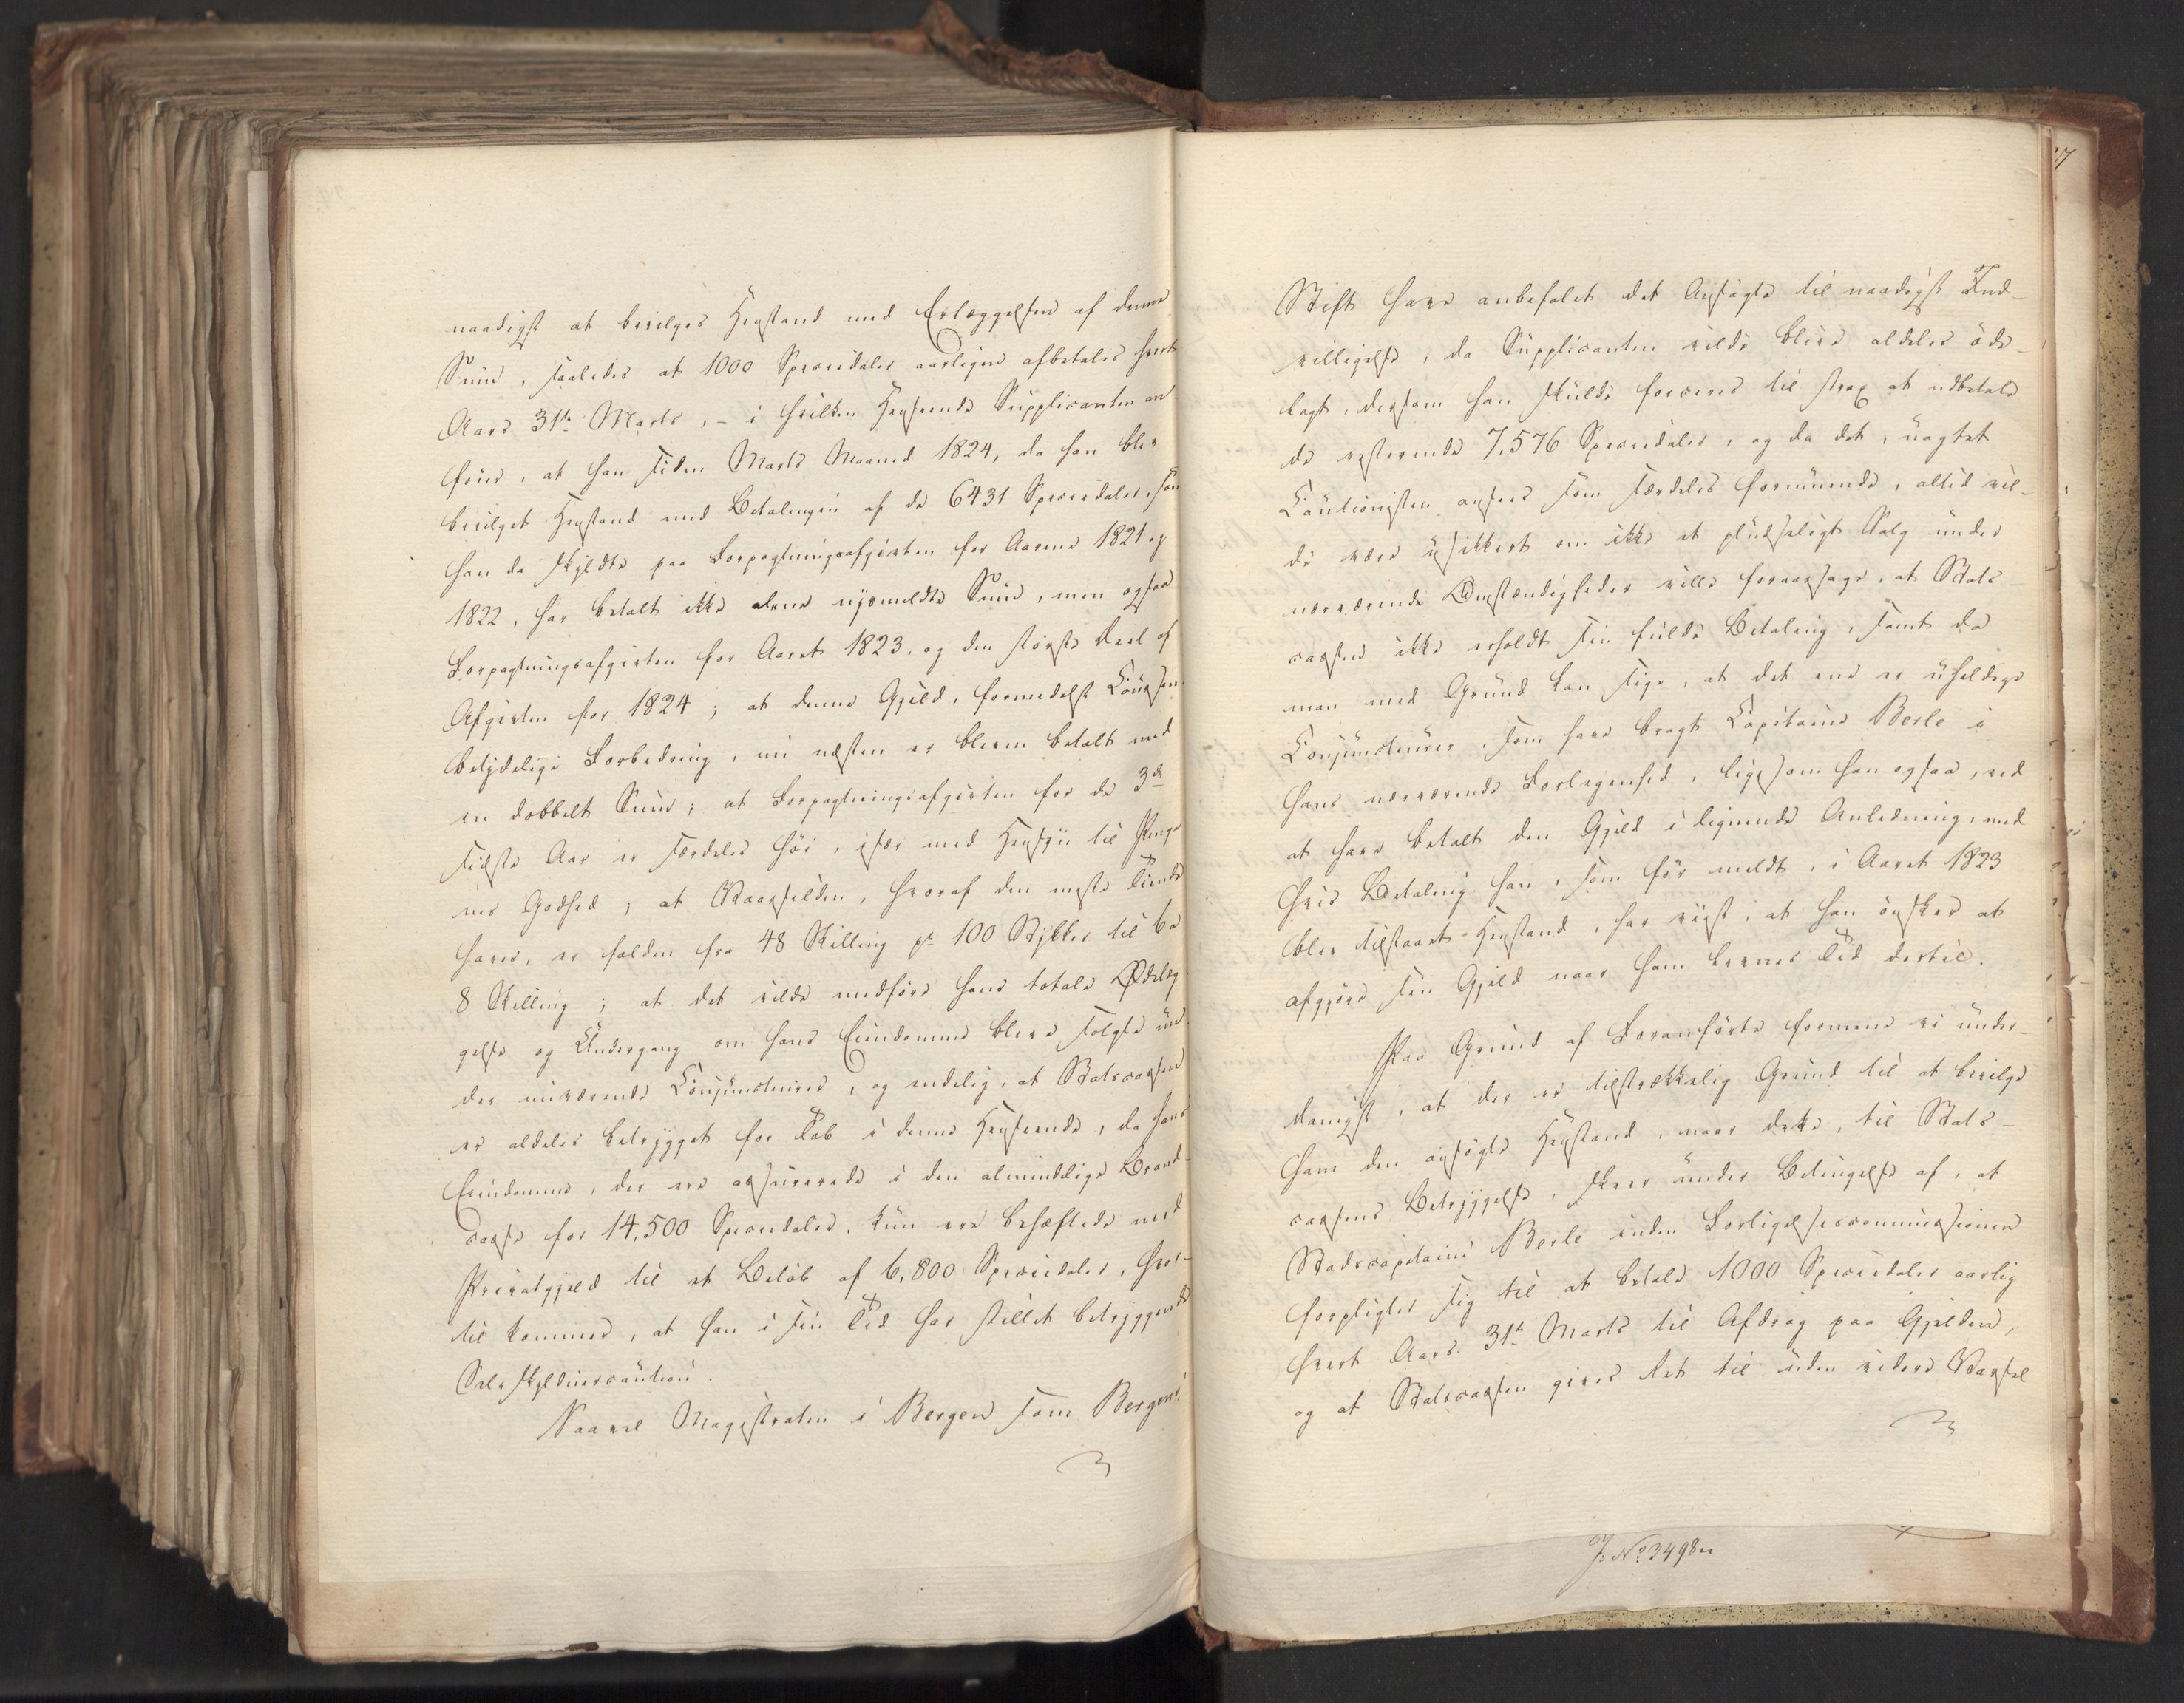 naadigst at bevilges Henstand med Erlæggelsen af denne
Sum, saaledes at 1000 Speciedaler aarligen afbetales hvert
Aars 31te Marts, – i hvilken Henseende Supplicanten an
fører, at han siden Marts Maaned 1824, da han blev
bevilget Henstand med Betalingen af de 6431 Speciedaler, som
han da skyldte paa Forpagtningsafgivten for Aarene 1821 og
1822, har betalt ikke alene nysmeldte Sum, men ogsaa
Forpagtningsafgivten for Aaret 1823, og den største Deel af
Afgivten for 1824; at denne Gjeld, formedelst Coursens
betydelige Forbedring, nu næsten er bleven betalt med
en dobbelt Sum; at Forpagtningsafgivten for de 3de
sidste Aar er særdeles höi, især med Hensyn til Penge
nes Godhed; at Vaarsilden, hvoraf den meste Tiende
haves, er falden fra 48 Skilling pr 100 Stykker til 6 a
8 Skilling; at det vilde medföre hans totale Ødelæg
gelse og Undergang om hans Eiendomme bleve solgte un
der nuværende Conjuncturer, og endelig, at Statscassen
er aldeles betrygget for Tab i denne Henseende, da hans
Eiendomme, der ere assurerede i den almindelige Brand-
casse for 14,500 Speciedaler, kun ere behæftede med
Privatgjeld til et Beløb af 6,800 Speciedaler, hvor-
til kommer, at han i sin Tid har stillet betryggende
Selvskyldnercaution.
Saavel Magistraten i Bergen som Bergens
Stift have anbefalet det Ansögte til naadigst Ind-
villigelse, da Supplicanten vilde blive aldeles öde-
lagt, dersom han skulde forceres til strax at udbetale
de resterende 7,576 Speciedaler, og da det, uagtet
Cautionisten ansees som særdeles formuende, altid vil-
de være usikkert om ikke et pludseligt Salg under
nærværende Omstændigheder ville foraarsage, at Stats-
cassen ikke erholdt sin fulde Betaling, samt da
man med Grund kan sige, at det ene er uheldige
Conjuncturer, som have bragt Capitaine Berle i
hans nærværende Forlegenhed, ligesom han ogsaa, ved
at have betalt den Gjeld i lignende Anledning, med
hvis Betaling han, som før meldt, i Aaret 1823
blev tilstaaet Henstand, har viist, at han önsker at
afgjöre sin Gjeld naar ham levnes Tid dertil.
Paa Grund af Foranførte formene vi under-
danigst, at der er tilstrækkelig Grund til at bevilge
ham den ansögte Henstand, naar dette, til Stats-
cassens Betryggelse, skeer under Betingelse af, at
Stadscapitaine Berle inden Forligelsescommissionen
forpligter sig til at betale 1000 Speciedaler aarlig
hvert Aars 31te Marts til Afdrag paa Gjelden,
og at Statscassen gives Ret til uden videre Varsel
J: No 3498